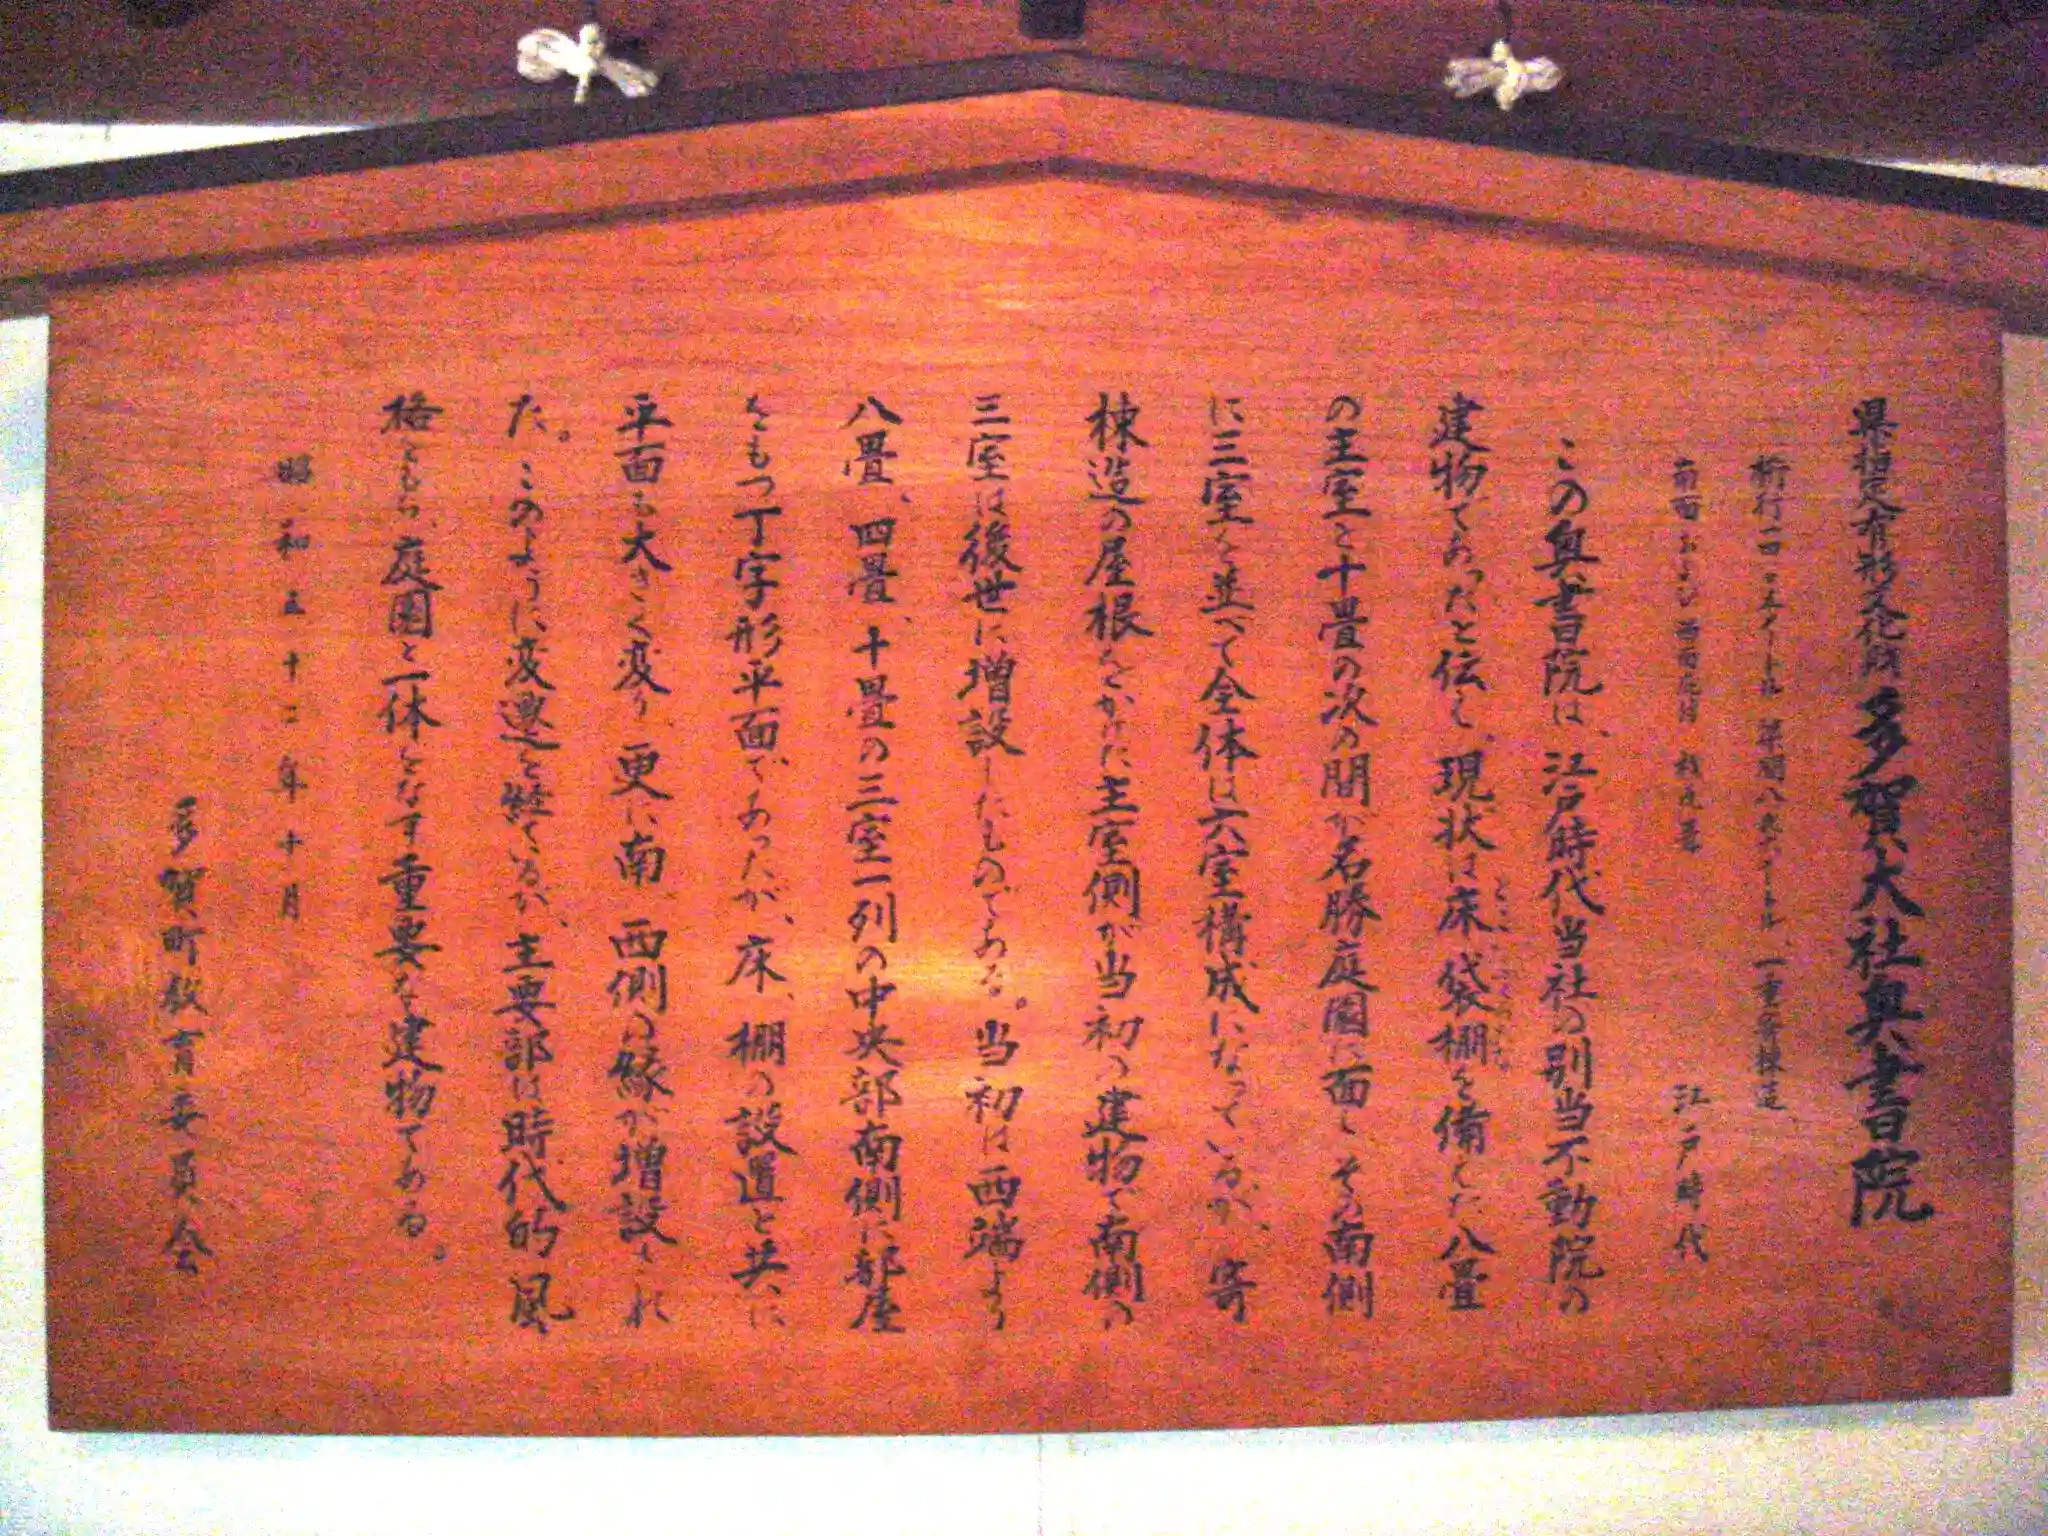 県指定有形文化財 多賀大社奥書院
桁行一四・二メートル 梁間八・九メートル、一重寄棟造、
南面および西面庇付 桟瓦葺 江戸時代
この奥書院は、江戸時代当社の別当不動院の
建物であったと伝え、現状は床、袋棚を備えた八畳
の主室と十畳の次の間が名勝庭園に面しその南側
に三室を並べて全体は六室構成になっているが、寄
棟造の屋根をかけた主室側が当初の建物で南側の
三室は後世に増設したものである。当初は西端より
八畳、四畳、十畳の三室一列の中央部南側に部屋
をもつ丁字形平面であったが、床、棚の設置と共に
平面も大きく変り、更に南、西側の縁が増設され
た。このように変遷を経ているが、主要部は時代的風
格をもち、庭園と一体をなす重要な建物である。
昭和五十二年十月
多賀町教育委員会